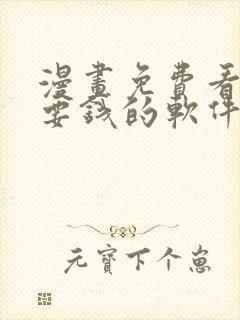 漫畫免費看
要錢的軟件
元寶下个崽